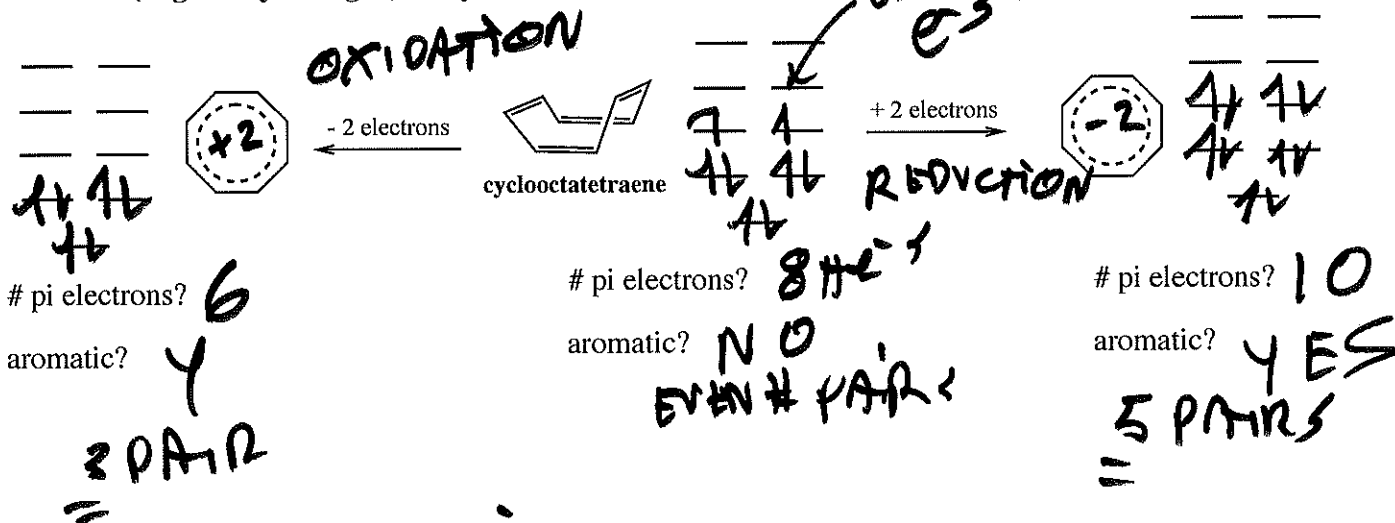 OXIDATION
e's
+2
- 2 electrons
cyclooctatetraene
+ 2 electrons
REDUCTION
-2
# pi electrons? 6
aromatic? Y
3 PAIR
# pi electrons? 8
aromatic? NO
EVEN # PAIRS
# pi electrons? 10
aromatic? YES
5 PAIRS